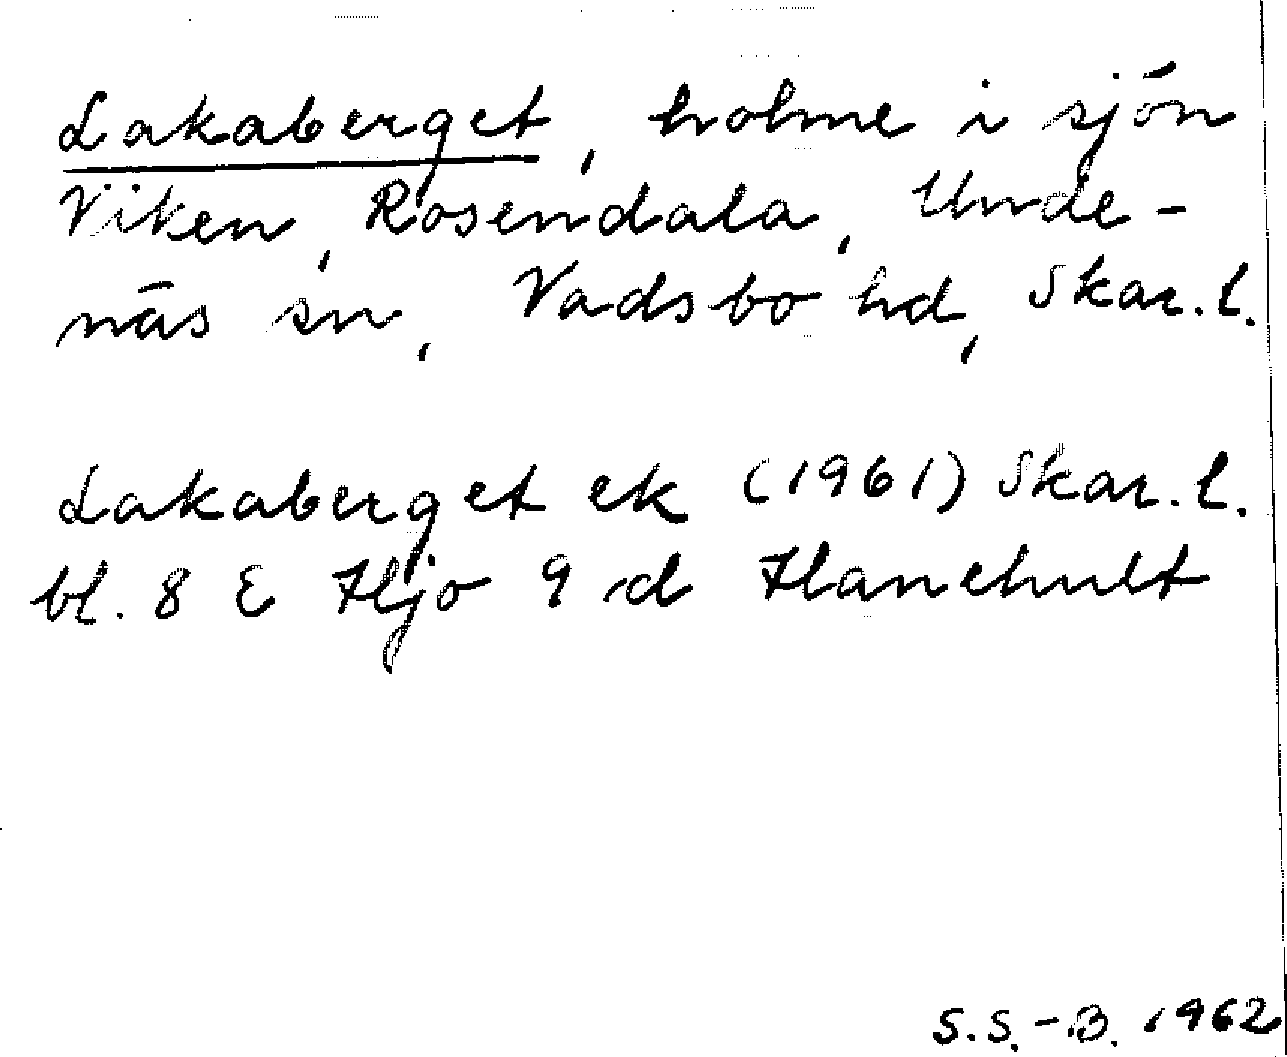 Lakaberget, holme i sjön
Viken, Rosendala, Unde-
näs sn, Vadsbo hd, Skar. l.
Lakaberget ek (1961) Skar. l.
bl. 8 E Hjo 9 d Hanehult
S.S.-B. 1962